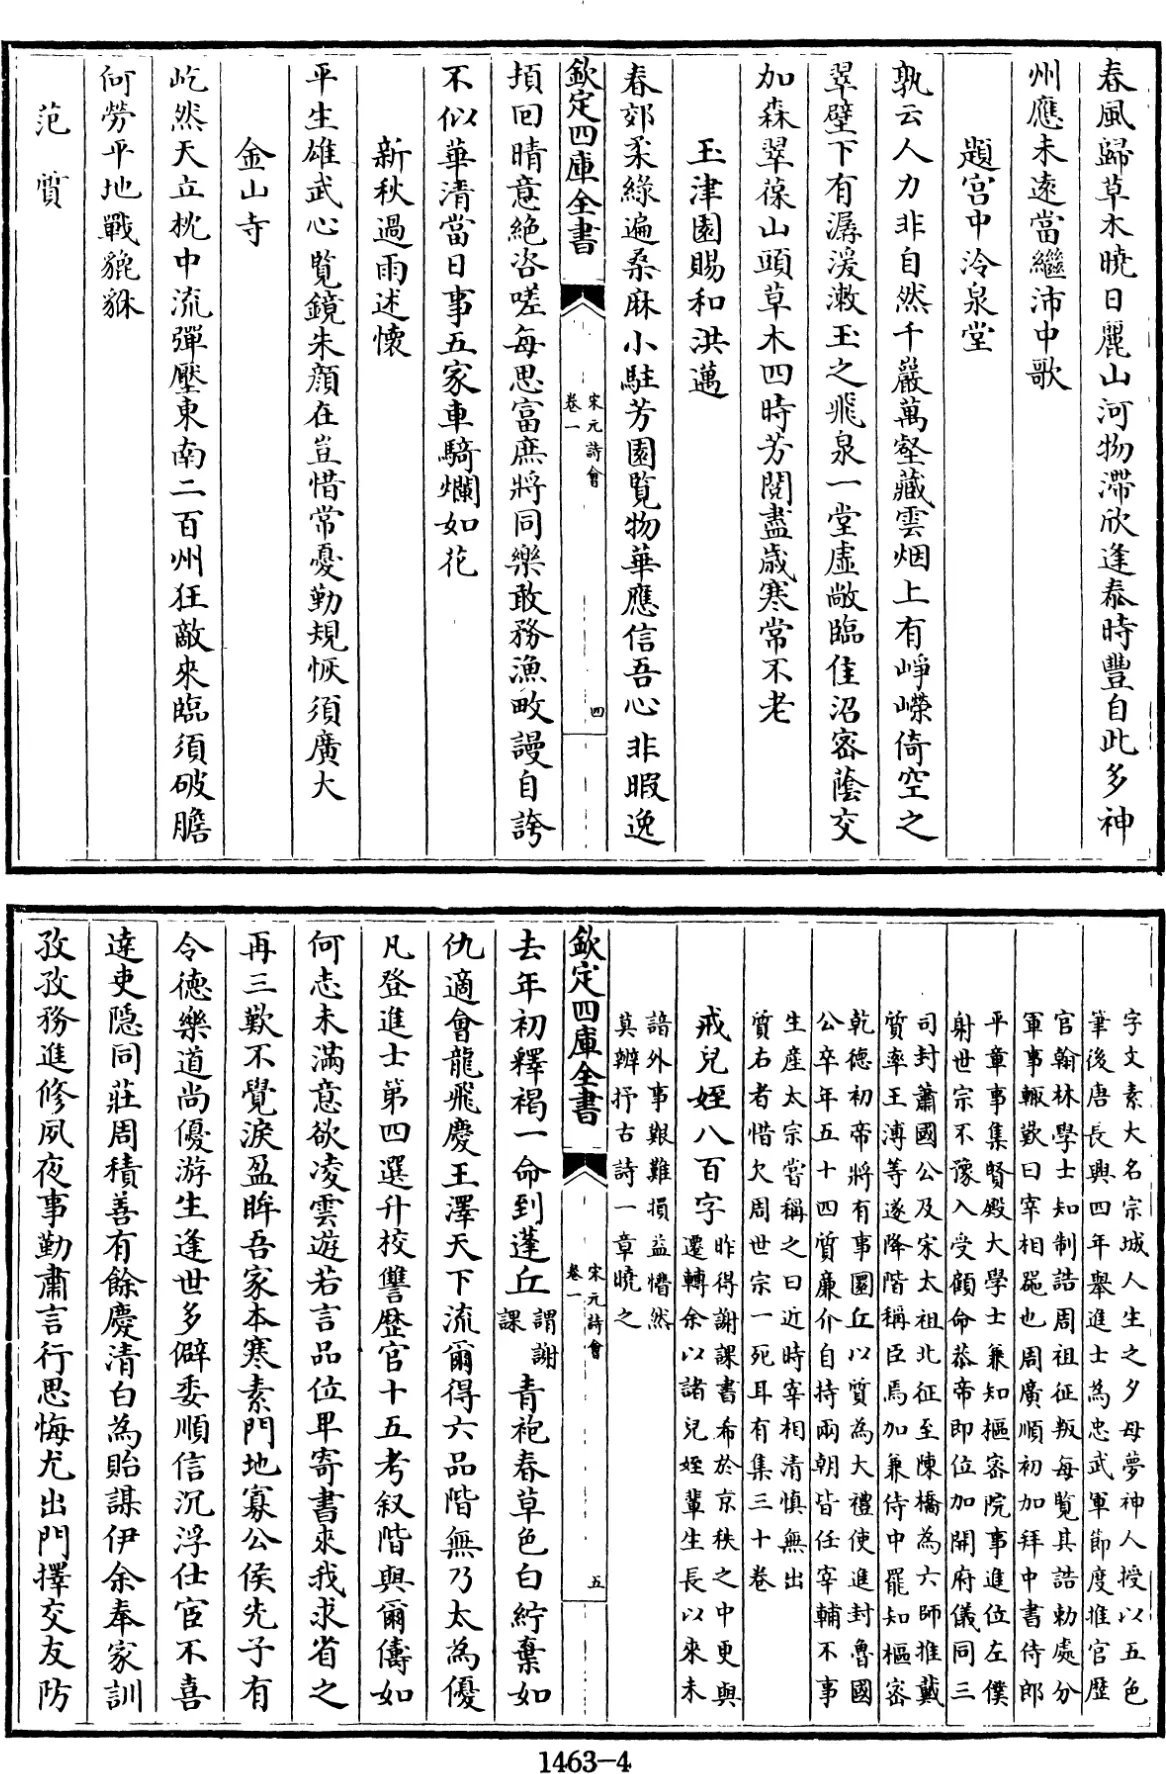 春風歸草木曉日麗山河物滯欣逢泰時豐自此多神
州應未遠當繼沛中歌
題宮中冷泉堂
孰云人力非自然千巖萬壑藏雲烟上有崢嶸倚空之
翠壁下有潺湲漱玉之飛泉一堂虛敞臨佳沼密蔭交
加森翠葆山頭草木四時芳閱盡歲寒常不老
玉津園賜和洪邁
春郊柔綠遍桑麻小駐芳園覽物華應信吾心非暇逸
欽定四庫全書
宋元詩會
卷一
四
頃回晴意絶咨嗟每思富庶將同樂敢務漁畋謾自誇
不似華清當日事五家車騎爛如花
新秋過雨述懷
平生雄武心覽鏡朱顔在豈惜常憂勤規恢須廣大
金山寺
屹然天立枕中流彈壓東南二百州狂敵來臨須破膽
何勞平地戰貔貅
范質
字文素大名宗城人生之夕母夢神人授以五色
筆後唐長興四年舉進士為忠武軍節度推官歷
官翰林學士知制誥周祖征叛每覽其誥勅處分
軍事輙歎曰宰相噐也周廣順初加拜中書侍郎
平章事集賢殿大學士兼知樞密院事進位左僕
射世宗不豫入受顧命恭帝即位加開府儀同三
司封蕭國公及宋太祖北征至陳橋為六師推戴
質率王溥等遂降階稱臣焉加兼侍中罷知樞密
乾德初帝將有事圜丘以質為大禮使進封魯國
公卒年五十四質廉介自持兩朝皆任宰輔不事
生產太宗嘗稱之曰近時宰相清慎無出
質右者惜欠周世宗一死耳有集三十卷
戒兒姪八百字
昨得謝課書希於京秩之中更與
遷轉余以諸兒姪輩生長以來未
諳外事艱難損益懵然
莫辦抒古詩一章曉之
欽定四庫全書
宋元詩會
卷一
五
去年初釋褐一命到蓬丘
謂謝
課
青袍春草色白紵棄如
仇適會龍飛慶王澤天下流爾得六品階無乃太為優
凡登進士第四選升校讐歴官十五考叙階與爾儔如
何志未滿意欲凌雲遊若言品位卑寄書來我求省之
再三歎不覺淚盈眸吾家本寒素門地寡公侯先子有
令德樂道尚優游生逢世多僻委順信沉浮仕宦不喜
達吏隱同莊周積善有餘慶清白為貽謀伊余奉家訓
孜孜務進修夙夜事勤肅言行思悔尤出門擇交友防
1463-4